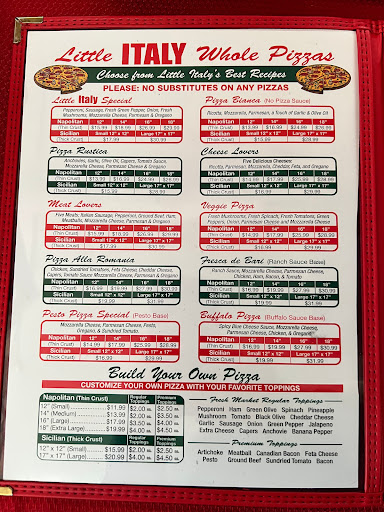 Little ITALY Whole Pizzas
Choose from Little Italy's Best Recipes
PLEASE: NO SUBSTITUTES ON ANY PIZZAS
Little Italy Special
Pepperoni, Sausage, Fresh Green Pepper, Onion, Fresh
Mushrooms, Mozzarella Cheese, Parmesan & Oregano
Napolitan 12" 14" 16" 18"
(Thin Crust) $15.99 $18.99 $26.99 $29.00
Sicilian Small 12" x 12" Large 17" x 17"
(Thick Crust) $17.99 $30.99
Pizza Rustica
Anchovies, Garlic, Olive Oil, Capers, Tomato Sauce,
Mozzarella Cheese, Parmesan Cheese & Oregano
Napolitan 12" 14" 16" 18"
(Thin Crust) $13.99 $16.99 $24.99 $26.99
Sicilian Small 12" x 12" Large 17" x 17"
(Thick Crust) $15.99 $28.99
Meat Lovers
Five Meats: Italian Sausage, Pepperoni, Ground Beef, Ham,
Meatballs, Mozzarella Cheese, Parmesan & Oregano
Napolitan 12" 14" 16" 18"
(Thin Crust) $15.99 $18.99 $26.99 $29.99
Sicilian Small 12" x 12" Large 17" x 17"
(Thick Crust) $17.99 $30.99
Pizza Alla Romania
Chicken, Sundried Tomatoes, Feta Cheese, Cheddar Cheese,
Capers, Tomato Sauce Mozzarella Cheese, Parmesan & Oregano
Napolitan 12" 14" 16" 18"
(Thin Crust) $16.99 $19.99 $27.99 $30.99
Sicilian Small 12" x 12" Large 17" x 17"
(Thick Crust) $19.99 $31.99
Pesto Pizza Special (Pesto Base)
Mozzarella Cheese, Parmesan Cheese, Pesto,
Oregano, & Sundried Tomato
Napolitan 12" 14" 16" 18"
(Thin Crust)
Sicilian Small 12" x 12" Large 17" x 17"
(Thick Crust) $16.99 $29.99
Pizza Bianca (No Pizza Sauce)
Ricotta, Mozzarella, Parmesan, a Touch of Garlic & Olive Oil
Napolitan 12" 14" 16" 18"
(Thin Crust) $13.99 $16.99 $24.99 $26.99
Sicilian Small 12" x 12" Large 17" x 17"
(Thick Crust) $16.99 $28.99
Cheese Lovers
Five Delicious Cheeses:
Ricotta, Parmesan, Mozzarella, Cheddar, Feta, and Oregano
Napolitan 12" 14" 16" 18"
(Thin Crust) $14.99 $17.99 $25.99
Sicilian Small 12" x 12" Large 17" x 17"
(Thick Crust) $16.99 $29.99
Veggie Pizza
Fresh Mushrooms, Fresh Spinach, Fresh Tomatoes, Green
Peppers, Onion, Parmesan Cheese and Mozzarella Cheese
Napolitan 12" 14" 16" 18"
(Thin Crust) $14.99 $17.99 $25.99 $28.99
Sicilian Small 12" x 12" Large 17" x 17"
(Thick Crust) $16.99 $29.99
Fresca de Bari (Ranch Sauce Base)
Ranch Sauce, Mozzarella Cheese, Parmesan Cheese,
Chicken, Ham, Bacon, & Tomato
Napolitan 12" 14" 16" 18"
(Thin Crust) $16.99 $19.99 $27.99 $30.99
Sicilian Small 12" x 12" Large 17" x 17"
(Thick Crust) $19.99 $31.99
Buffalo Pizza (Buffalo Sauce Base)
Spicy Blue Cheese Sauce, Mozzarella Cheese,
Parmesan Cheese, Chicken, & Oregano
Napolitan 12" 14" 16" 18"
(Thin Crust) $16.99 $19.99 $27.99 $30.99
Sicilian Small 12" x 12" Large 17" x 17"
(Thick Crust) $19.99 $31.99
Build Your Own Pizza
CUSTOMIZE YOUR OWN PIZZA WITH YOUR FAVORITE TOPPINGS
Napolitan (Thin Crust) Regular Toppings Premium Toppings
12" (Small) $11.99 $2.00 ea. $2.50 ea.
14" (Medium) $13.99 $2.50 ea.
16" (Large) $17.99 $3.50 ea.
18" (Extra Large) $19.99 $4.00 ea. $4.50 ea.
Sicilian (Thick Crust) Regular Toppings Premium Toppings
12" x 12" (Small) $15.99 $2.00 ea. $2.50 ea.
17" x 17" (Large) $20.99 $4.00 ea. $4.50 ea.
Fresh Market Regular Toppings
Pepperoni Ham Green Olive Spinach Pineapple
Mushroom Tomato Black Olive Cheddar Cheese
Garlic Sausage Onion Green Pepper Jalapeno
Extra Cheese Capers Anchovie Banana Pepper
Premium Toppings
Artichoke Meatball Canadian Bacon Feta Cheese
Pesto Ground Beef Sundried Tomato Bacon